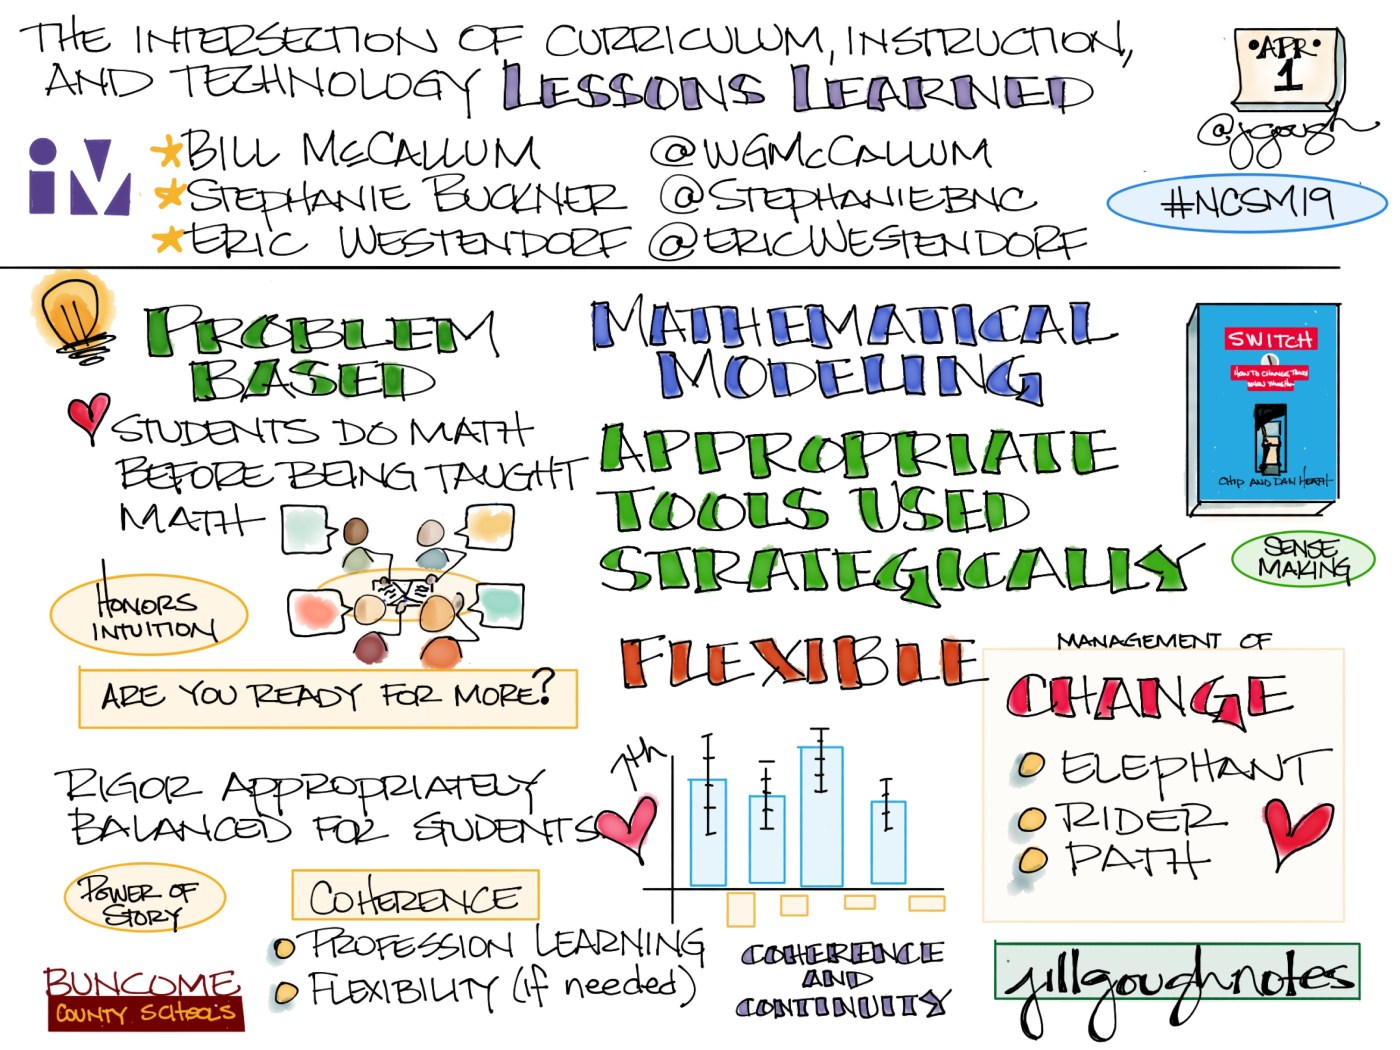 THE INTERSECTION OF CURRICULUM, INSTRUCTION,
AND TECHNOLOGY LESSONS LEARNED
•APR•
1
@jgough
IM
BILL McCALLUM @WGMcCALLUM
STEPHANIE BUCKNER @STEPHANIEBNC
ERIC WESTENDORF @ERICWESTENDORF
#NCSM19
PROBLEM
BASED
STUDENTS DO MATH
BEFORE BEING TAUGHT
MATH
HONORS
INTUITION
ARE YOU READY FOR MORE?
RIGOR APPROPRIATELY
BALANCED FOR STUDENTS
POWER OF
STORY
COHERENCE
PROFESSION LEARNING
FLEXIBILITY (if needed)
BUNCOME
COUNTY SCHOOLS
MATHEMATICAL
MODELING
APPROPRIATE
TOOLS USED
STRATEGICALLY
FLEXIBLE
7th
COHERENCE
AND
CONTINUITY
SWITCH
HOW TO CHANGE THINGS
WHEN
CHIP AND DAN HEATH
SENSE
MAKING
MANAGEMENT OF
CHANGE
ELEPHANT
RIDER
PATH
jillgoughnotes